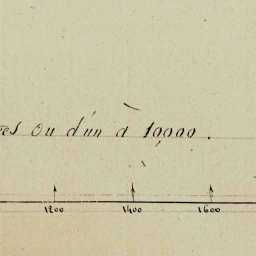 ou d'un à 10,000.
1200 1400 1600